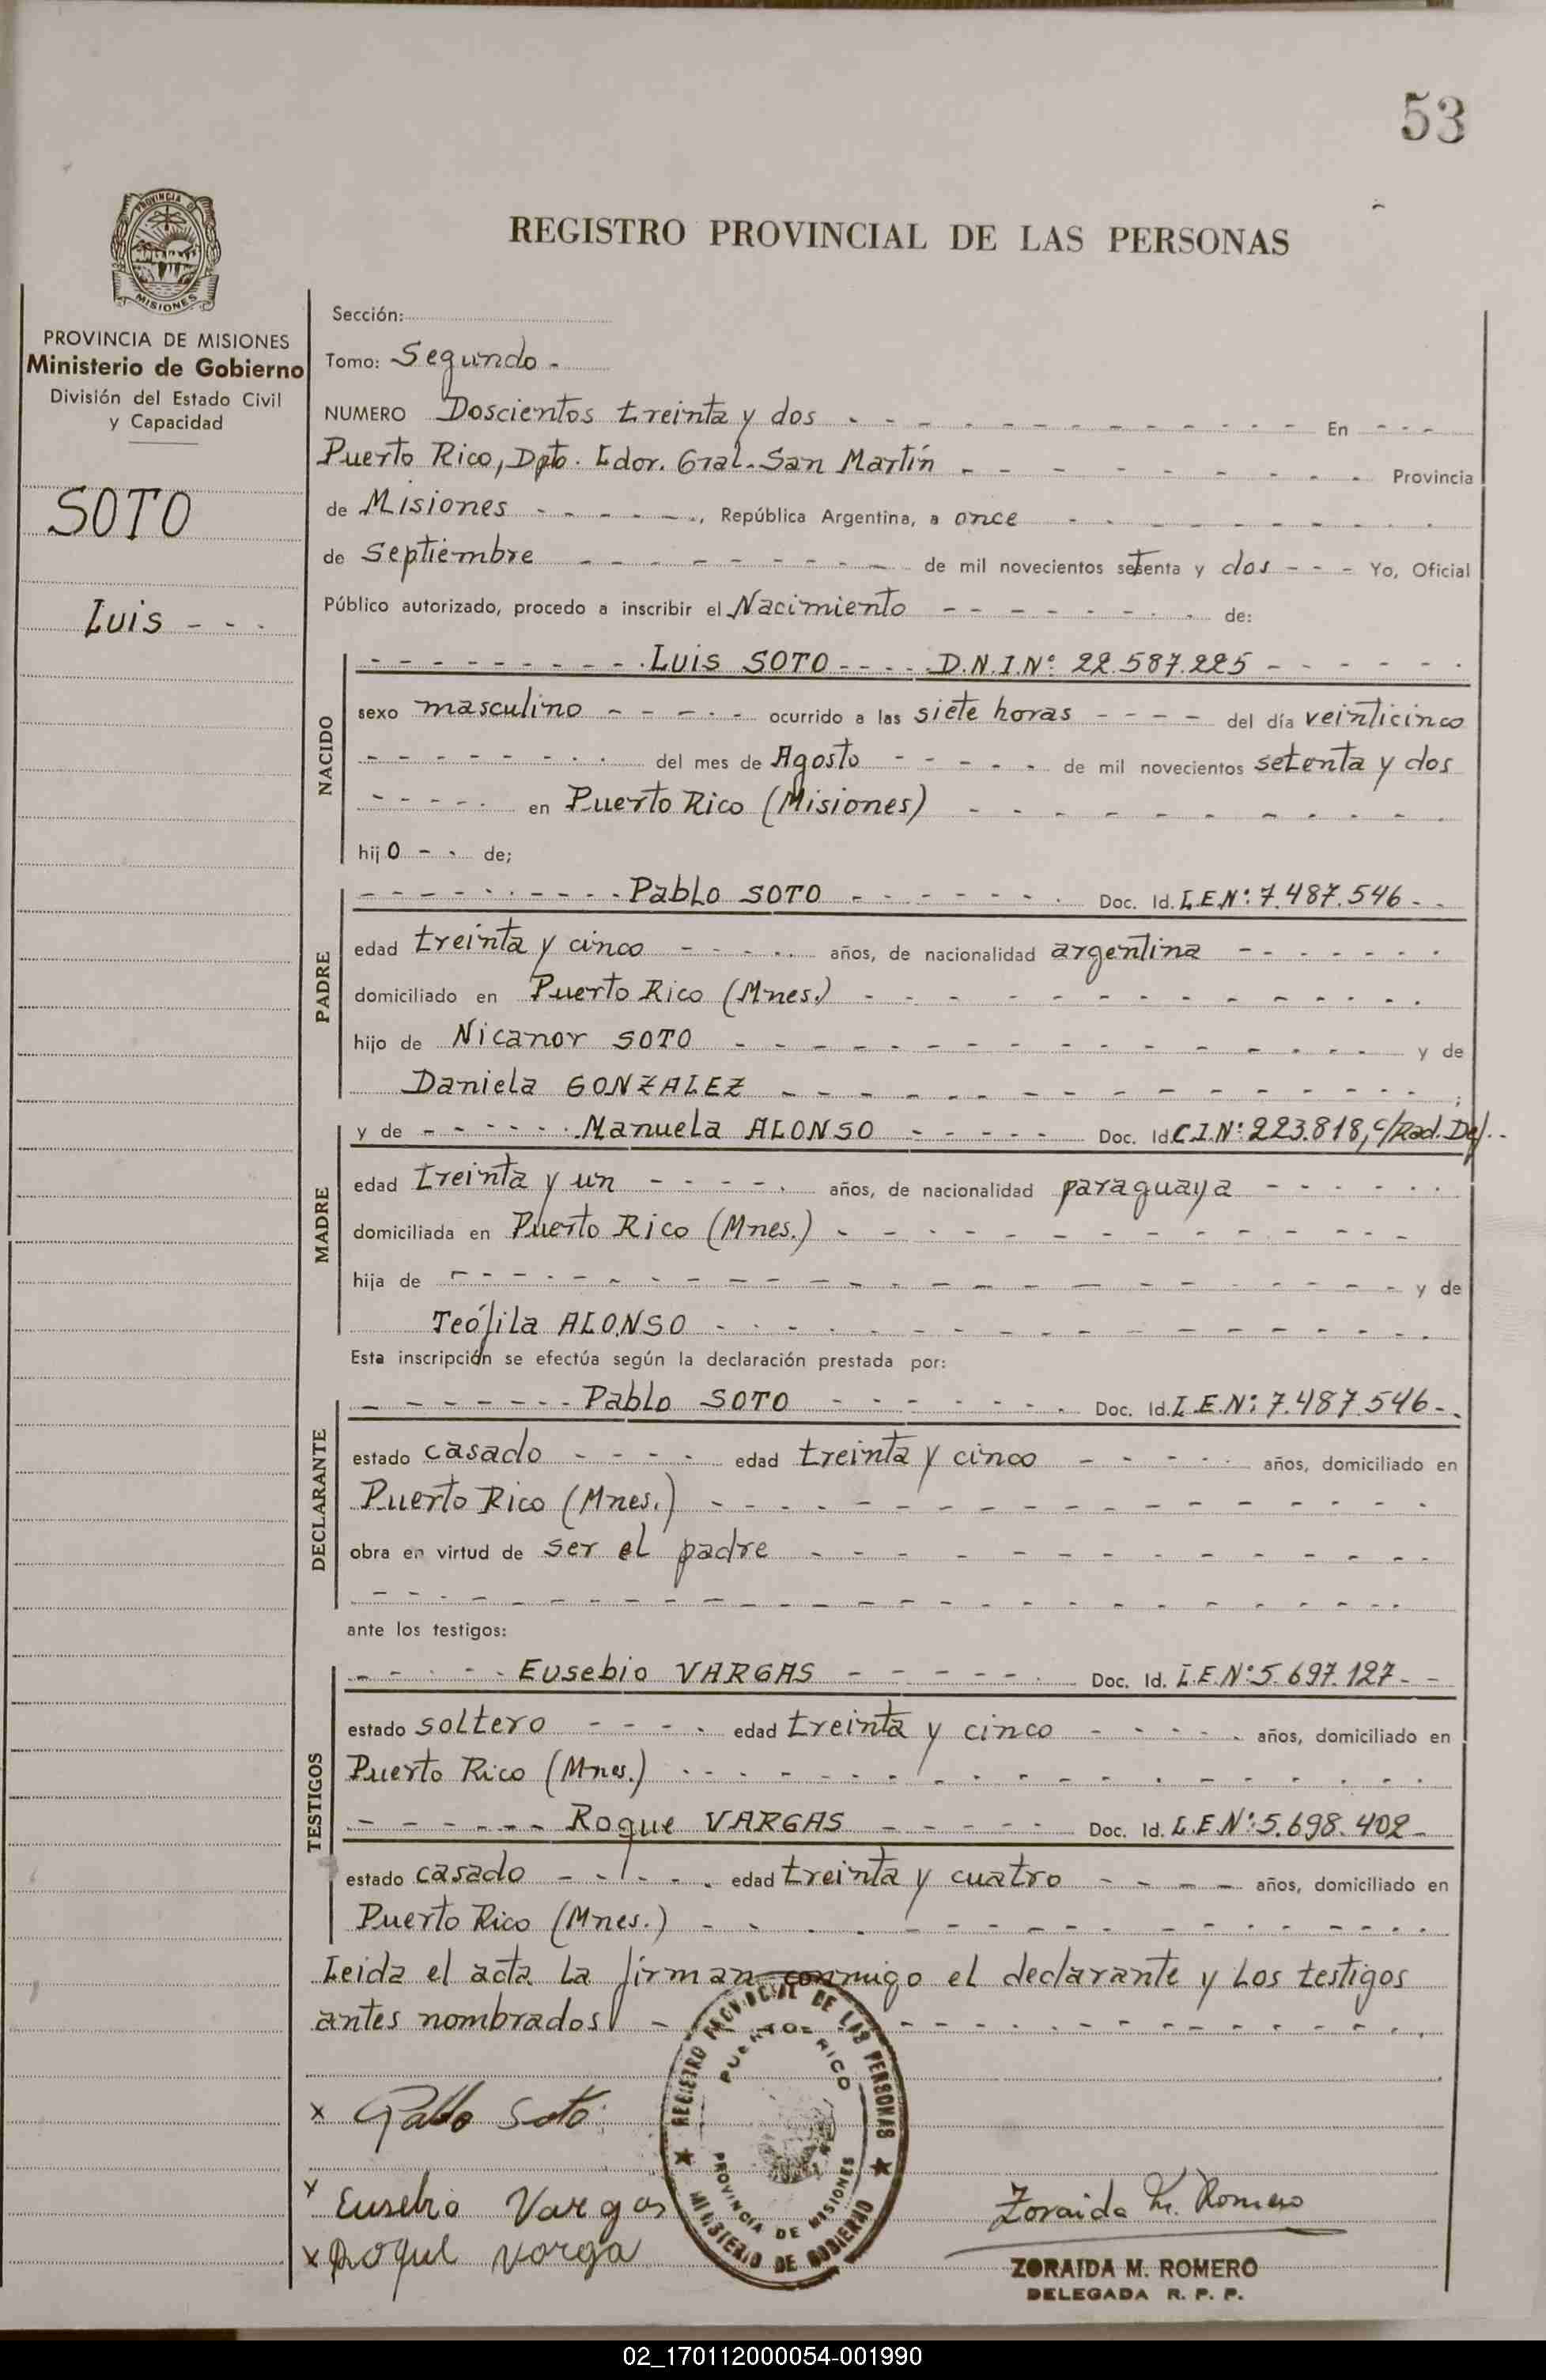 53
REGISTRO PROVINCIAL DE LAS PERSONAS
PROVINCIA DE MISIONES
PROVINCIA DE MISIONES
Ministerio de Gobierno
División del Estado Civil
y Capacidad
SOTO
Luis - - -
Sección:
Tomo: Segundo -
NUMERO Doscientos treinta y dos - - - En - - -
Puerto Rico, Dpto. Ldor. Gral. San Martín - - - Provincia
de Misiones - - -, República Argentina, a once - - -
de Septiembre - - - de mil novecientos setenta y dos - - - Yo, Oficial
Público autorizado, procedo a inscribir el Nacimiento - - - de:
NACIDO
- - - Luis SOTO - - - D.N.I.Nº 22.587.225 - - -
sexo masculino - - - ocurrido a las siete horas - - - del día veinticinco
- - - del mes de Agosto - - - de mil novecientos setenta y dos
- - - en Puerto Rico (Misiones) - - -
hijo - - de;
PADRE
- - - Pablo SOTO - - - Doc. Id. L.E.Nº: 7.487.546 - -
edad treinta y cinco - - - años, de nacionalidad argentina - - -
domiciliado en Puerto Rico (Mnes.) - - -
hijo de Nicanor SOTO - - - y de
Daniela GONZALEZ - - - ;
MADRE
y de - - - Manuela ALONSO - - - Doc. Id. C.I.Nº: 223.818, c/Rad. Def. - -
edad treinta y un - - - años, de nacionalidad paraguaya - - -
domiciliada en Puerto Rico (Mnes.) - - -
hija de - - - y de
Teófila ALONSO - - -
Esta inscripción se efectúa según la declaración prestada por:
DECLARANTE
- - - Pablo SOTO - - - Doc. Id. L.E.Nº: 7.487.546 - -
estado casado - - - edad treinta y cinco - - - años, domiciliado en
Puerto Rico (Mnes.) - - -
obra en virtud de ser el padre - - -
- - -
ante los testigos:
TESTIGOS
- - - Eusebio VARGAS - - - Doc. Id. L.E.Nº: 5.697.127 - -
estado soltero - - - edad treinta y cinco - - - años, domiciliado en
Puerto Rico (Mnes.) - - -
- - - Roque VARGAS - - - Doc. Id. L.E.Nº: 5.698.402 -
estado casado - - - edad treinta y cuatro - - - años, domiciliado en
Puerto Rico (Mnes.) - - -
Leida el acta la firman conmigo el declarante y los testigos
antes nombrados - - -
REGISTRO PROVINCIAL DE LAS PERSONAS
PUERTO RICO
PROVINCIA DE MISIONES
MINISTERIO DE GOBIERNO
x Pablo Soto
x Eusebio Vargas
x Roque Varga
Zoraida M. Romero
ZORAIDA M. ROMERO
DELEGADA R. P. P.
02_170112000054-001990